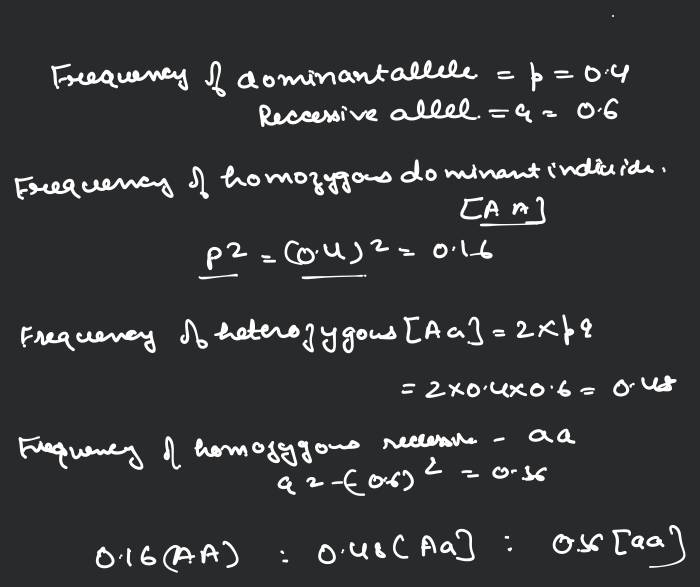 Frequency of dominant allele = p = 0.4
Reccessive allel. = q = 0.6
Frequency of homozygous dominant individu.
[AA]
p2 = (0.4)2 = 0.16
Frequency of heterozygous [Aa] = 2×pq
= 2×0.4×0.6 = 0.48
Frequency of homozygous recessive - aa
q2 - (0.6)2 = 0.36
0.16 (AA) : 0.48 (Aa] : 0.36 [aa]